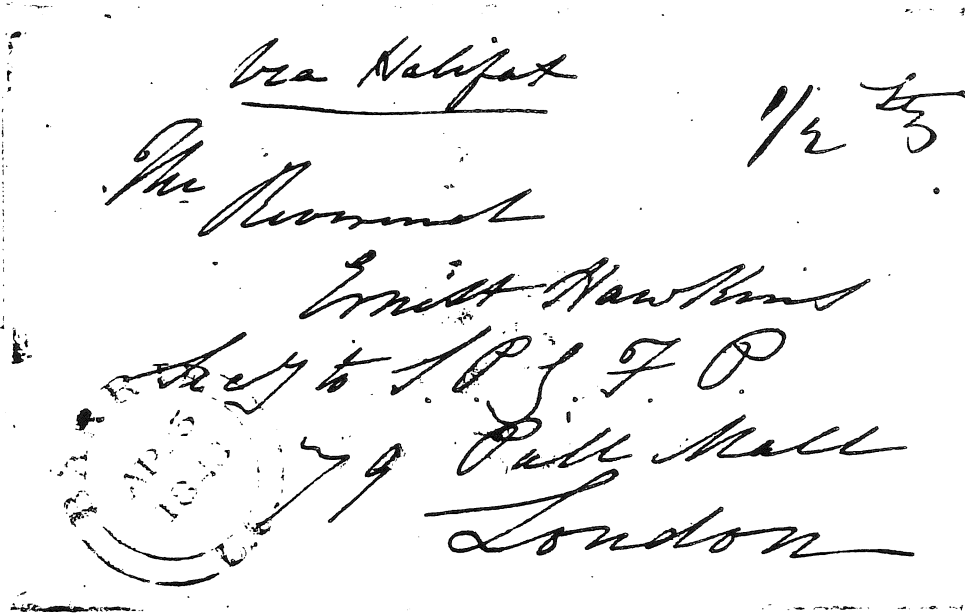 Via Halifax
1/2
The
Reverend
Ernest Hawkins
Secy to S.P.G.F.P.
79 Pall Mall
London
AP 8